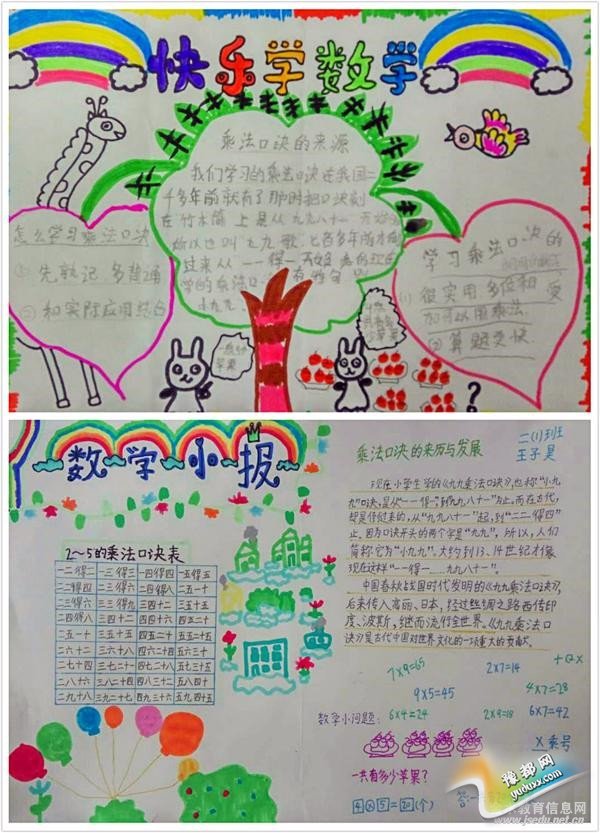 快乐学数学
乘法口诀的来源
我们学习的乘法口诀在我国二
千多年前就有了那时把口诀刻
在竹木简上是从九九八十一开始
所以也叫九九歌
过来从一一得一开始
学的乘法口
小九九
怎么学习乘法口决
① 先熟记 多背诵
② 和实际应用结合
学习乘法口决的
很实用
② 算题更快
苹果
?
数学小报
2~5的乘法口诀表
一二得二 一三得三 一四得四 一五得五
二二得四 二三得六 二四得八 二五一十
二三得六 三三得九 三四十二 三五十五
二四得八 三四十二 四四十六 四五二十
二五一十 三五十五 四五二十 五五二十五
二六十二 三六十八 四六二十四 五六三十
二七十四 三七二十一 四七二十八 五七三十五
二八十六 三八二十四 四八三十二 五八四十
二九十八 三九二十七 四九三十六 五九四十五
乘法口诀的来历与发展
二(1)班
王子昊
现在小学生学的《九九乘法口诀》,也称“小九
九”口诀,是从“一一得一”到“九九八十一”为止。而在古代,
却是倒过来的,从“九九八十一”起,到“二二得四”
止。因为口诀开头的两个字是“九九”,所以,人们
简称它为“小九九”。大约到13、14世纪才像
现在这样“一一得一……九九八十一”。
中国春秋战国时代发明的《九九乘法口诀》,
后来传入高丽、日本,经过丝绸之路西传印
度、波斯,继而流行全世界。《九九乘法口
诀》是古代中国对世界文化的一项重大的贡献。
7×9=65 2×7=14
9×5=45 4×7=28
数学小问题: 6×4=24 2×9=18 6×7=42
×乘号
一共有多少苹果?
4×5=20(个) 答:一
豫都网
yuduxx.com
教育信息网
www.jsedu.net.cn